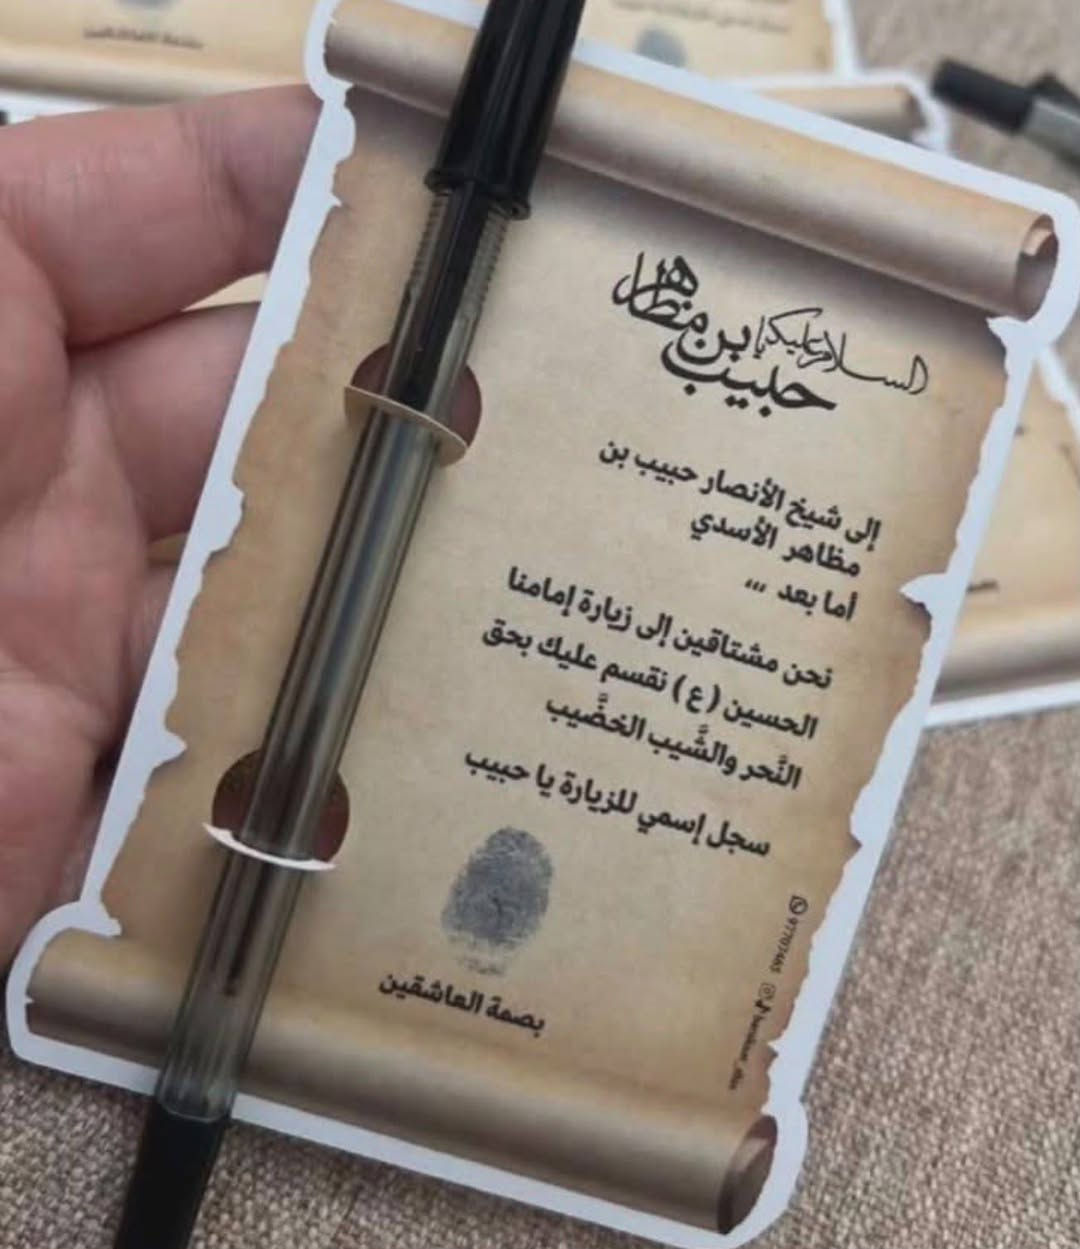 السلام عليك يا
حبيب بن مظاهر
إلى شيخ الأنصار حبيب بن
مظاهر الأسدي
أما بعد ،،،
نحن مشتاقين إلى زيارة إمامنا
الحسين (ع) نقسم عليك بحق
النَّحر والشَّيب الخضَّيب
سجل إسمي للزيارة يا حبيب
بصمة العاشقين
97707465
بصمة العاشقين